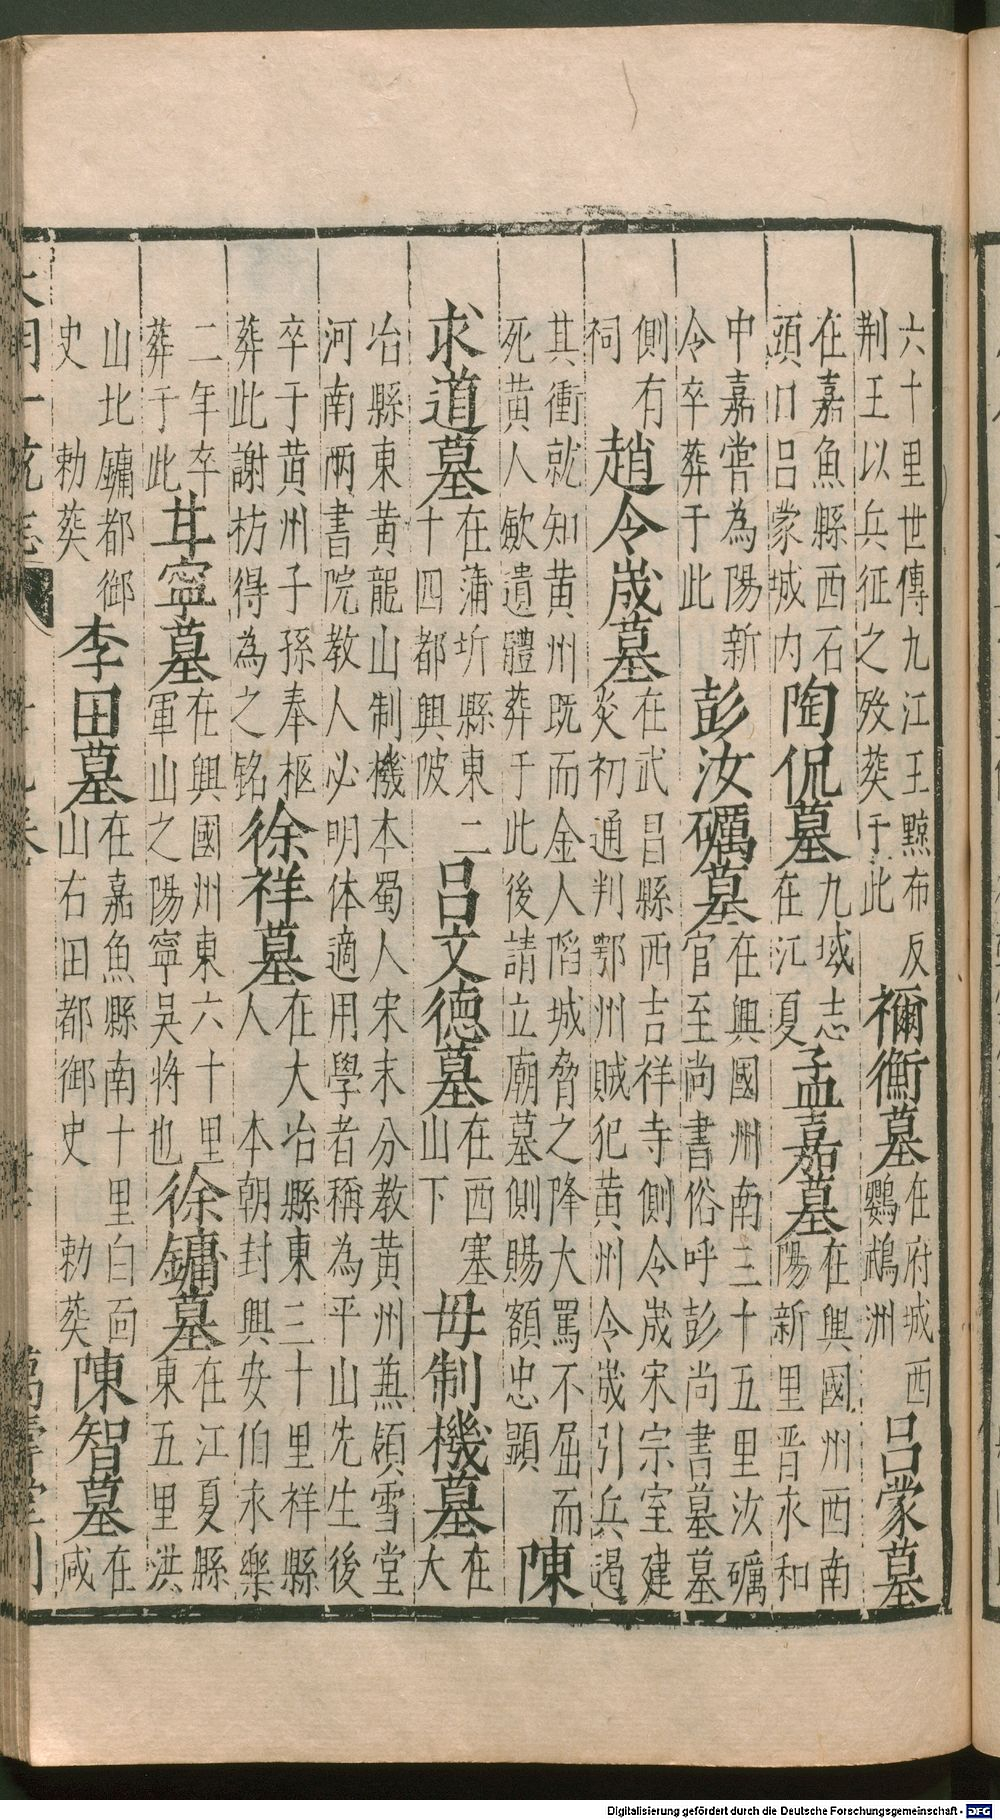 六十里世傳九江王黥布反
荆王以兵征之殁葬于此
禰衡墓
在府城西
鸚鵡洲
呂蒙墓
在嘉魚縣西石
頭口呂蒙城内
陶侃墓
九域志
在江夏
孟嘉墓
在興國州西南
陽新里晉永和
中嘉嘗為陽新
令卒葬于此
彭汝礪墓
在興國州南三十五里汝礪
官至尚書俗呼彭尚書墓墓
側有
祠
趙令荿墓
在武昌縣西吉祥寺側令荿宋宗室建
炎初通判鄂州賊犯黄州令荿引兵遏
其衝就知黄州既而金人䧟城脅之降大罵不屈而
死黄人斂遺體葬于此後請立廟墓側賜額忠顯
陳
求道墓
在蒲圻縣東二
十四都興陂
呂文德墓
在西塞
山下
毋制機墓
在
大
冶縣東黄龍山制機本蜀人宋末分教黄州兼領雪堂
河南兩書院教人必明体適用學者稱為平山先生後
卒于黄州子孫奉柩
葬此謝枋得為之铭
徐祥墓
在大冶縣東三十里祥縣
人 本朝封興安伯永樂
二年卒
葬于此
甘寧墓
在興國州東六十里
軍山之陽寧吳將也
徐鏞墓
在江夏縣
東五里洪
山北鏞都御
史 勅葬
李田墓
在嘉魚縣南十里白面
山右田都御史 勅葬
陳智墓
在
咸
大明一統志
萬壽堂刊
Digitalisierung gefördert durch die Deutsche Forschungsgemeinschaft - DFG